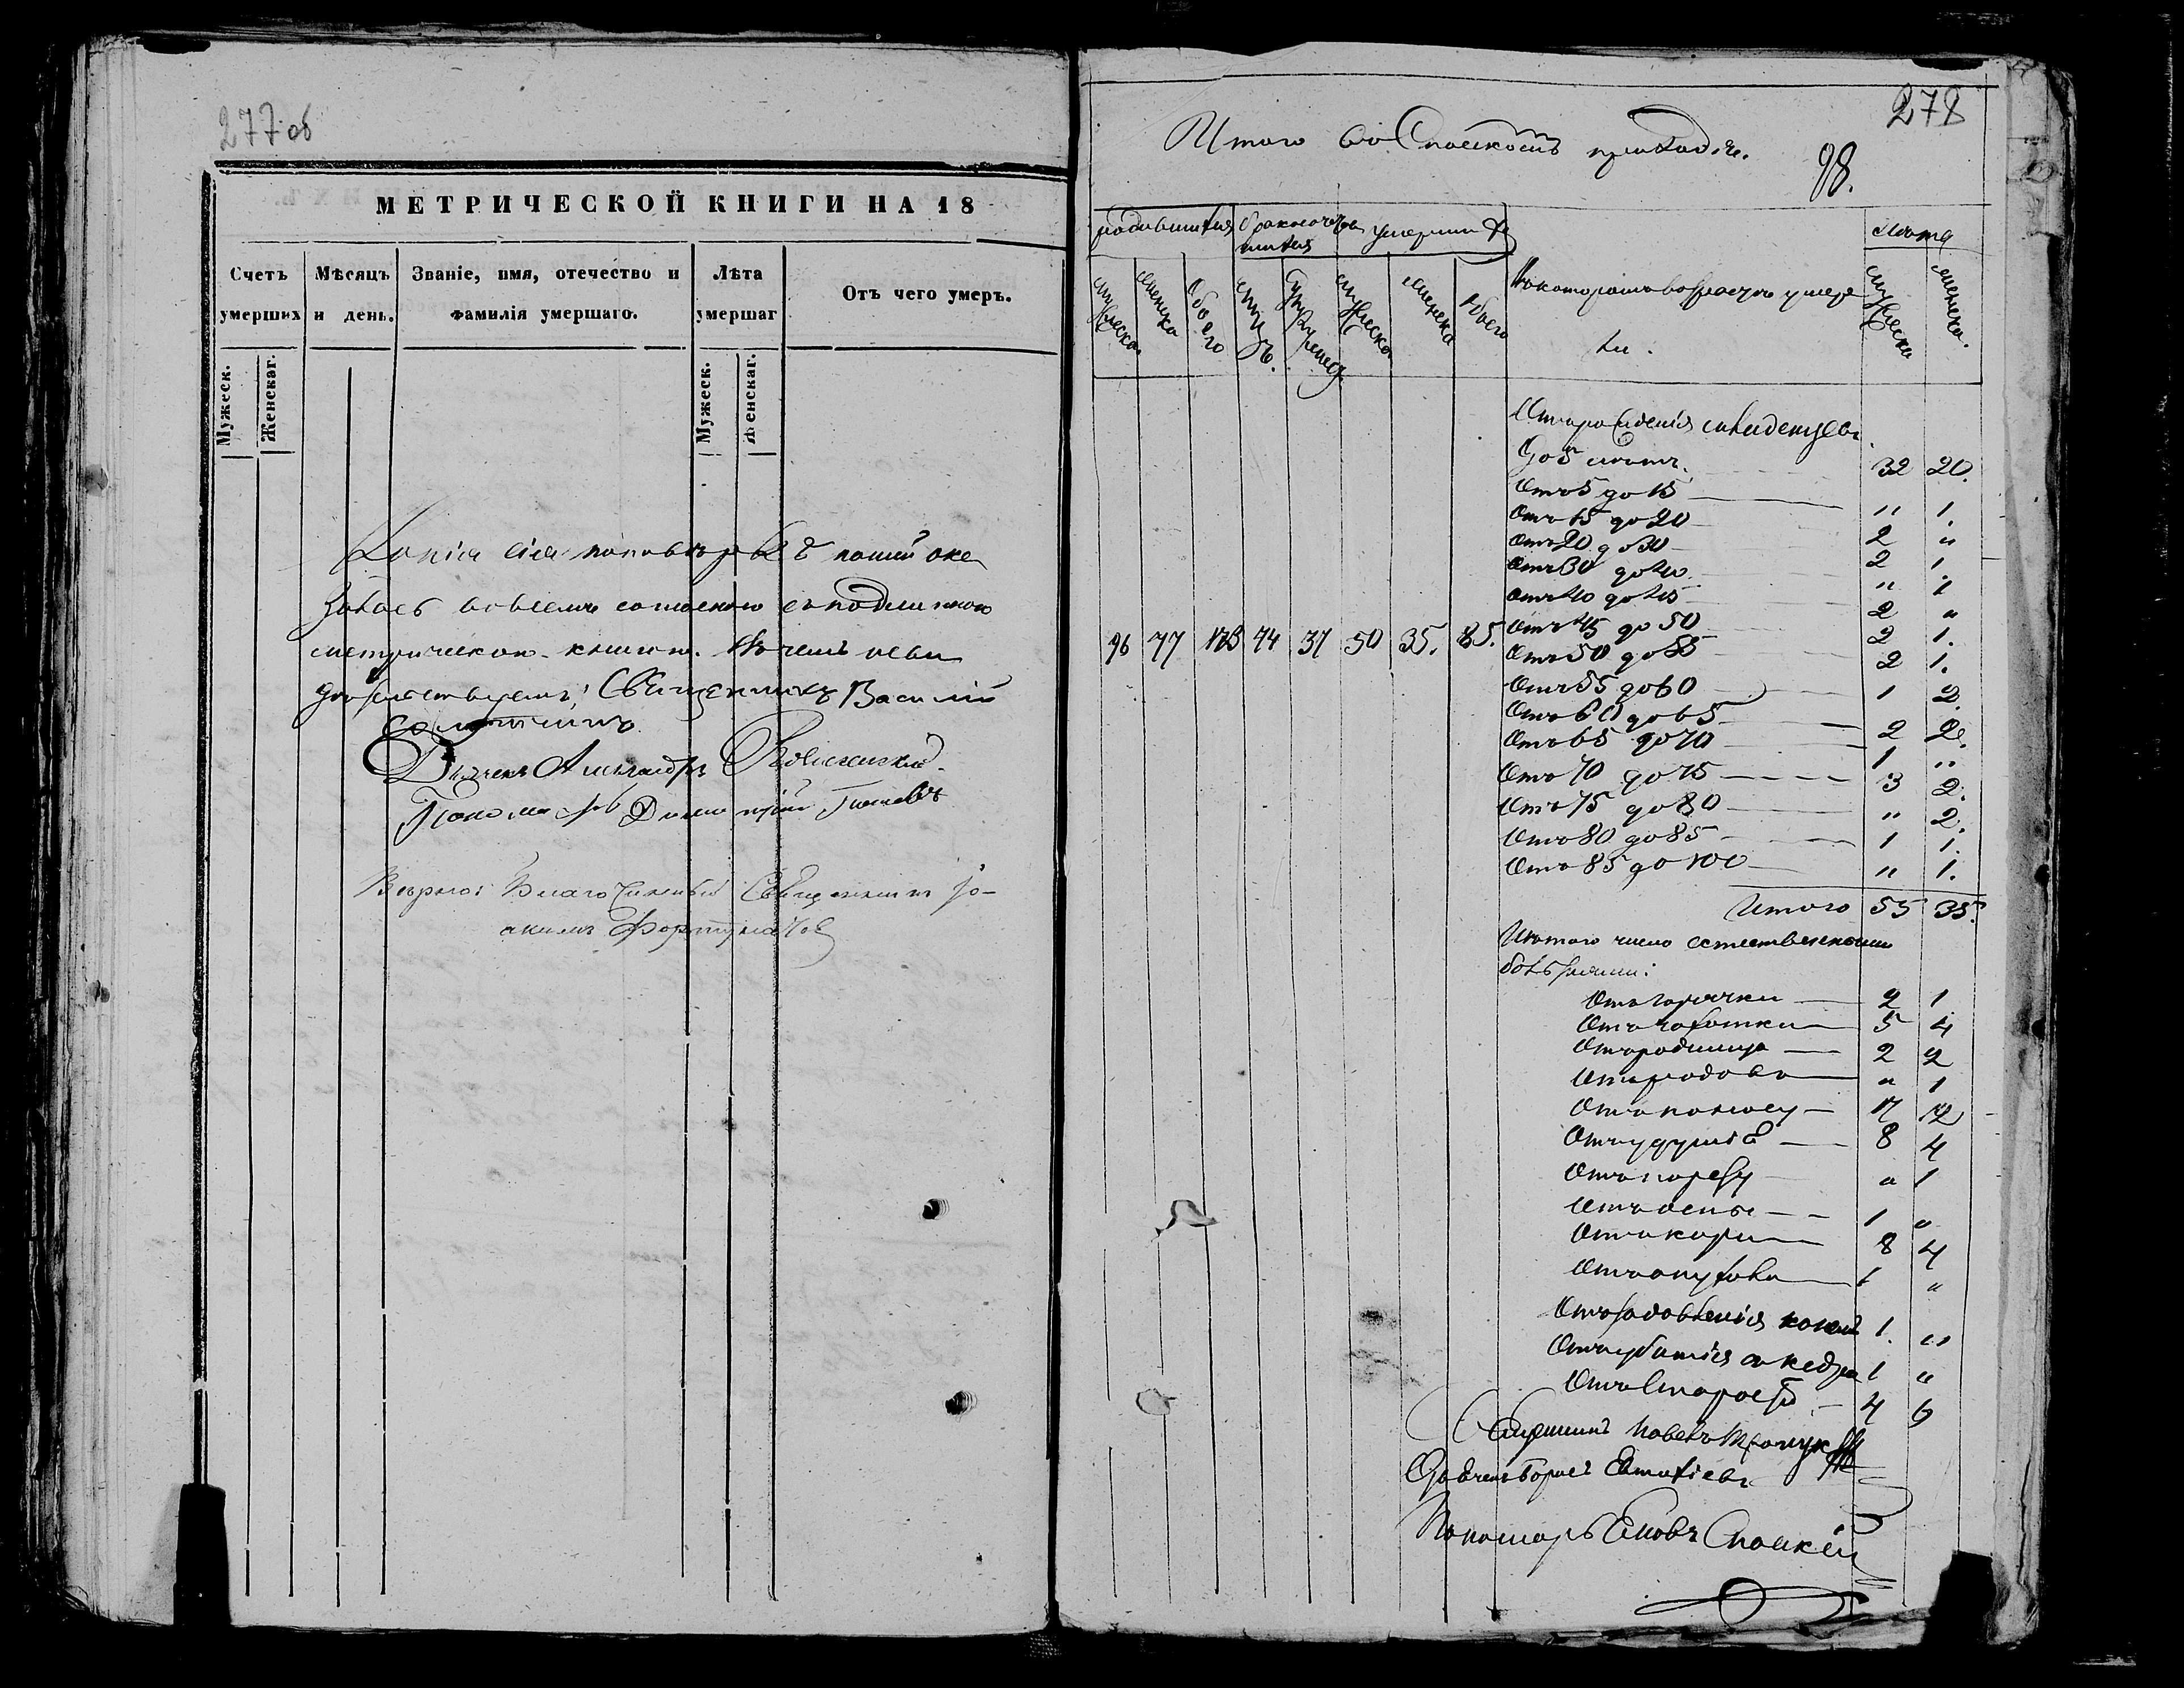 277 об
МЕТРИЧЕСКОЙ КНИГИ НА 18
Счетъ умерших
Мѣсяцъ и день.
Званіе, имя, отечество и фамилія умершаго.
Лѣта умершаг
Отъ чего умеръ.
Мужеск. Женскаг. Мужеск. Женскаг.
Копія сія по повѣркѣ нашей ока
залась во всемъ согласною съ подлинною
метрическою книгою. въ чемъ
Священникъ Василій
Дьяченъ Александръ
Пономарь Димитрій Титовъ
Вѣрно: Благочинный Священникъ Іо-
акимъ Фортунатов
278
Итого въ Спаскомъ приходѣ.
98.
родившихся бракосочетавшихся умерших
лѣта
мужеска женска обоего мужъ. мужеска женска обоего
Въ которыхъ возрастахъ умер
ли.
мужеска женска.
Отъ рожденія младенцевъ
До 5 лѣтъ. 32 20.
Отъ 5 до 15 " 1.
Отъ 15 до 20 2 "
Отъ 20 до 30 2 1
Отъ 30 до 40 " 1
Отъ 40 до 45 2 "
96 77 173 74 37 50 35. 85. Отъ 45 до 50 2 1.
Отъ 50 до 55 2 1.
Отъ 55 до 60 1 2.
Отъ 60 до 65 2 2.
Отъ 65 до 70 1 "
Отъ 70 до 75 3 2.
Отъ 75 до 80 " 2.
Отъ 80 до 85 1 1.
Отъ 85 до 100 " 1.
Итого 55 35.
Изъ того числа естественными
болѣзнями:
Отъ горячки 2 1
Отъ чахотки 5 4
Отъ родимца 2 2
Отъ родовъ " 1
Отъ поносу 17 12
Отъ удушья 8 4
Отъ " 1
Отъ оспы 1 "
Отъ кори 8 4
Отъ 1 "
Отъ задавленія 1. "
Отъ убитія съ кедра 1 "
Отъ старости 4 6
Священникъ Павелъ
Борисъ Евтихіевъ
Пономарь Яковъ Спаскій